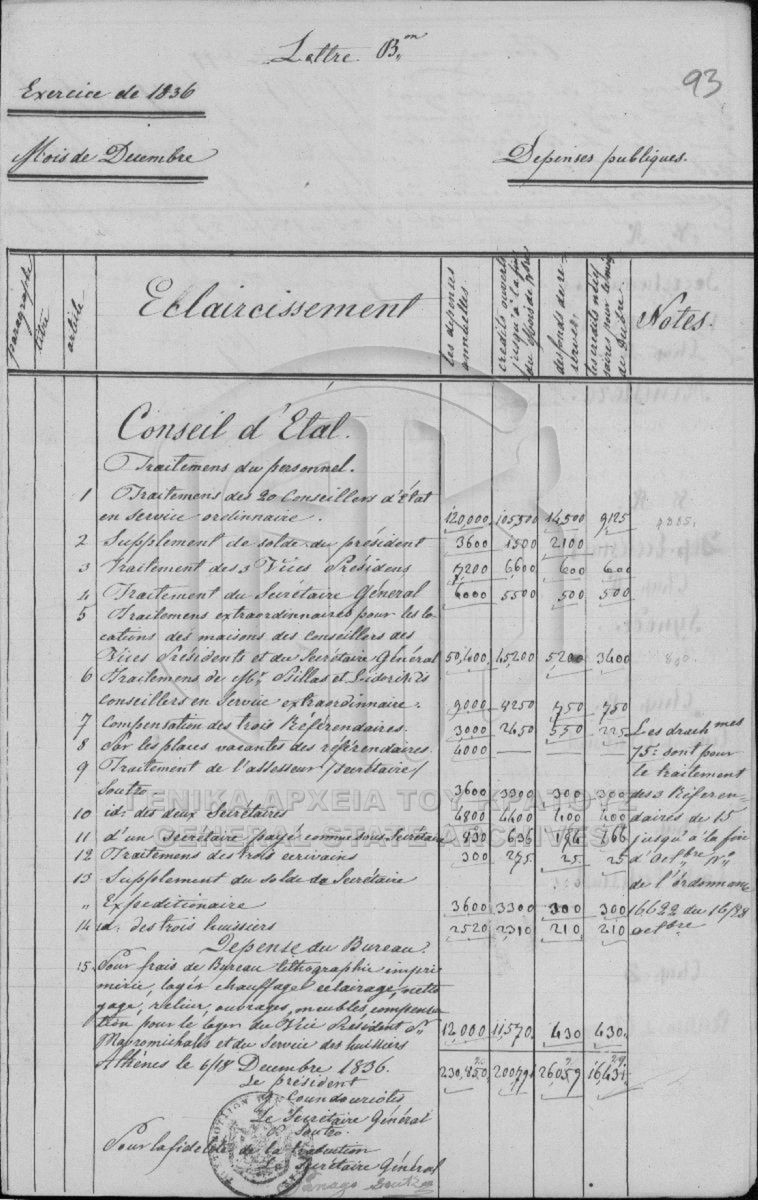 Lettre B.on
93
Exercice de 1836
Mois de Decembre
Depenses publiques.
paragraphe
titre
article
Eclaircissement
les depenses annuelles
credits ouverts jusqu'à la fin du mois de
des fonds de reserve
les credits
Notes.
Conseil d'État.
Traitemens du personnel.
1 Traitemens des 20 Conseillers d'État
en service ordinnaire. 120,000 105500 14,500 9125
2 Supplement de solde du président 3600 1500 2100
3 Traitement des 3 Vices Présidens 7200 6600 600 600
4 Traitement du Secrétaire Général 6000 5500 500 500
5 Traitemens extraordinnaires pour les lo-
cations des maisons des Conseillers des
Vices Présidents et du Secrétaire Général 50,400 45,200 5200 3400
6 Traitemens de Mr.
Conseillers en Service extraordinnaire. 9000 8250 750 750
7 Compensation des trois Référendaires. 3000 2450 550 225 Les drachmes
8 Por les places vacantes des référendaires. 4000 — 75: sont pour
9 Traitement de l'assesseur /secrétaire/ le traitement
Soutzo 3600 3300 300 300 des 3 Référen-
10 id: des deux Secrétaires 4800 4400 400 400 daires de 15
11 d'un secretaire payé comme sous Secrétaire 830 636 194 166 jusqu'à la fin
12 Traitemens des trois ecrivains 300 275 25 25 d'Octbre No
13 Supplement du solde da Secrétaire de l'ordonnance
" Expeditionaire 3600 3300 300 300 16622 du 16/28
14 id. des trois huissiers 2520 2310 210 210 octbre
Depense du Bureau.
15. Pour frais de Bureau lithographie impri-
mérie, logis chauffage eclairage, netto
yage, relieur, ouvrages, meubles, compensa
tion pour le loger du Vice President Sr
Mavromichalis et du Service des huissiers 12,000 11,570 430 430
Athénes le 6/18 Decembre 1836. 230,850 200791 26059 16,431
Le président
G Coundouriotes
Le Secrétaire Général
Soutzo.
Pour la fidelité de la traduction
Le Secrétaire Général
Panago Soutzo
ΓΕΝΙΚΑ ΑΡΧΕΙΑ ΤΟΥ ΚΡΑΤΟΥΣ
GENERAL STATE ARCHIVES